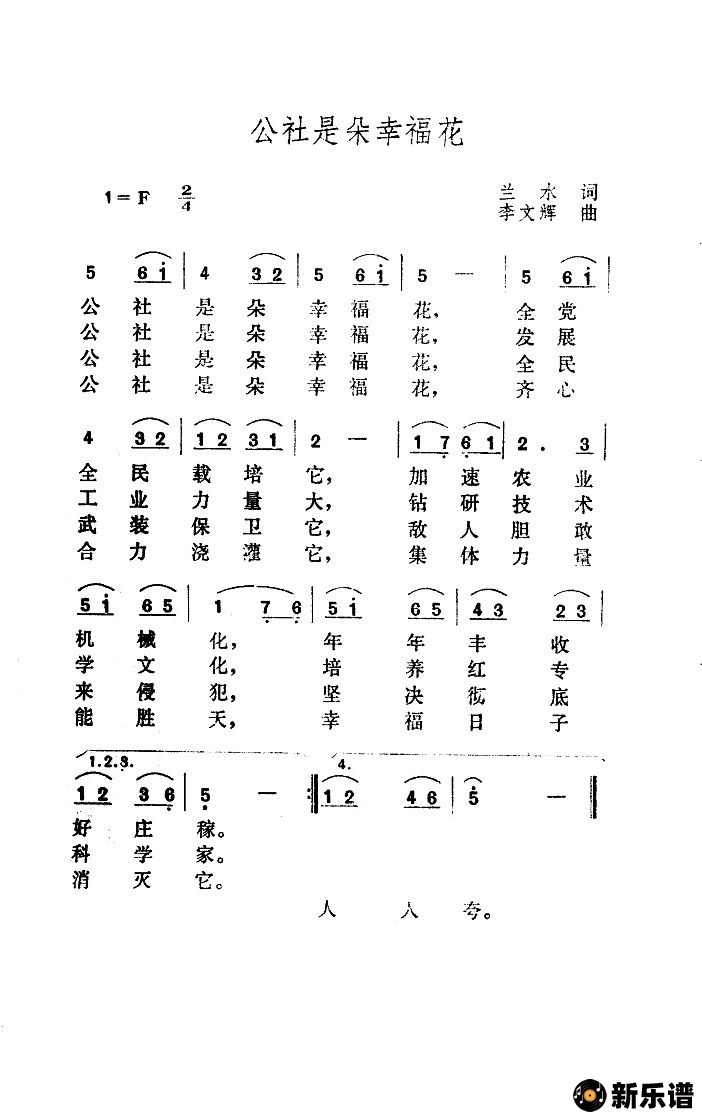 公社是朵幸福花
1=F 2/4
兰水词
李文辉曲
5 6i | 4 32 | 5 6i | 5 — | 5 6i |
公社是朵幸福花，全党
公社是朵幸福花，发展
公社是朵幸福花，全民
公社是朵幸福花，齐心
4 32 | 12 31 | 2 — | 17 61 | 2 . 3 |
全民载培它，加速农业
工业力量大，钻研技术
武装保卫它，敌人胆敢
合力浇灌它，集体力量
5i 65 | 1 76 | 5i 65 | 43 23 |
机械化，年年丰收
学文化，培养红专
来侵犯，坚决彻底
能胜天，幸福日子
1.2.3. 4.
12 36 | 5 — :‖ 12 46 | 5 — ‖
好庄稼。
科学家。
消灭它。
人人夸。
新乐谱